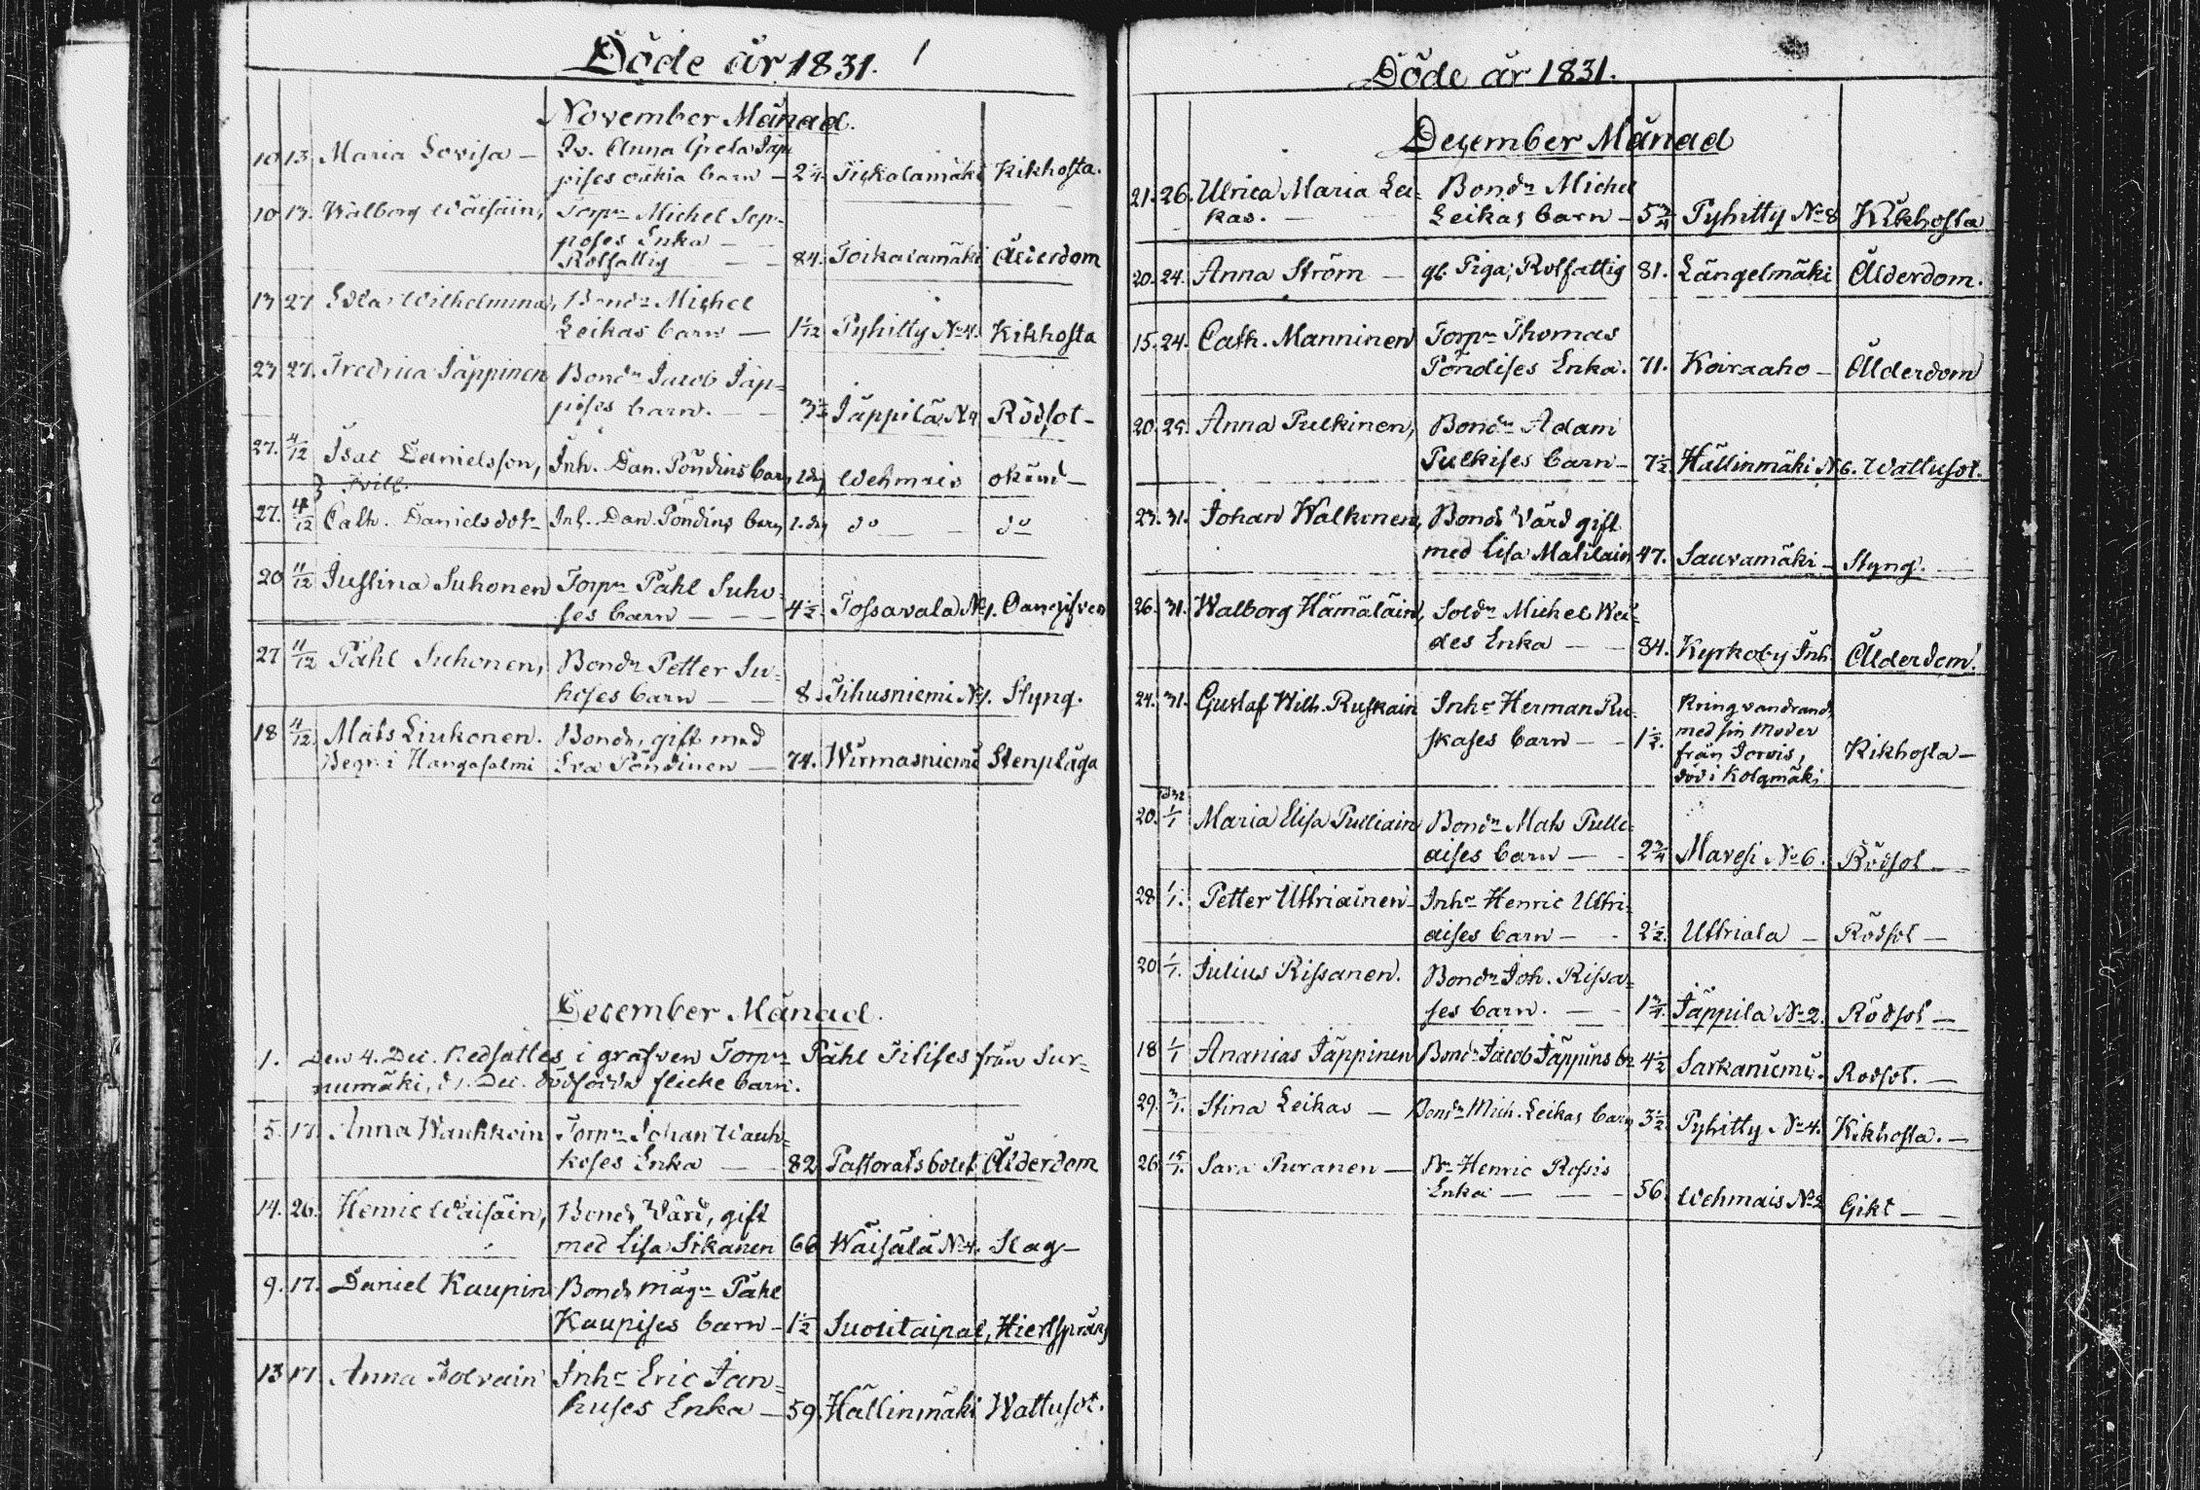 Döde år 1831.
November Månad.
10 13 Maria Lovisa — Qv. Anna Greta Jäp
pises oäkta barn — 2¼. Tickalamäki Kikhosta.
10 13. Walborg Wäisäin, Torpr Michel Sep-
poses Enka —
Rotfattig — 84. Toikalamäki Ålderdom
13 27 Eva Wilhelmina, Bondn Michel
Leikas barn — 1 1/12 Pyhitty No 4. Kikhosta
23 27. Fredrica Jäppinen Bondn Jacob Jäp-
pises barn. — Jäppilä No Rödsot —
27. 4/12 Isac Danielsson, Inh. Dan. Pöndins barn, 1 dg Wehmais okänd —
Tvill.
27. 4/12 Cath. Danielsdotr Inh. Dan. Pöndins barn, 1. dg do — do
20 11/12 Justina Suhonen Torpr Påhl Suho-
ses barn — 4½. Tossavala No 1.
27 11/12 Påhl Suhonen, Bondn Petter Su-
hoses barn — 8. Tihusniemi No 1. Styng.
18 4/12. Mats Liukonen. Bonde, gift med
Begr. i Hangasalmi Eva Pöndinen — 74. Wirmasniemi Stenplåga
December Månad.
1. Den 4. Dec. nedsattes i grafven Torpr Påhl Tilises från Sur-
numäki, d 1. Dec. dödfödda flicke barn.
5. 17. Anna Wauhkoin Torpr Johan Wauh-
koses Enka — 82 Pastorats bolet Ålderdom
14. 26. Henric Wäisäin, Bonde Värd, gift
med Lisa Sikanen 66 Wäisälä No 4. Slag —
9. 17. Daniel Kaupin Bonde mågn Påhl
Kaupises barn — 1½ Suontaipal, Hiertsprång
13 17 Anna Tolvain Inhr Eric Jan-
huses Enka — 59. Hällinmäki Wattusot.
Döde år 1831.
December Månad
21. 26. Ulrica Maria Lei- Bondn Michel
kas. — Leikas barn — 5¾ Pyhitty No 8 Kikhosta
20. 24. Anna Ström — gl. Piga, Rotfattig 81. Längelmäki Ålderdom.
15. 24. Cath. Manninen Torpr Thomas
Pöndises Enka. 71. Koiraaho — Ålderdom
20. 25. Anna Pulkinen, Bondn Adam
Pulkises barn — 7½ Hällinmäki N 6. Wattusot.
23. 31. Johan Walkonen, Bonde Värd gift
med Lisa Matilain, 47. Sauvamäki — Styng. —
26. 31. Walborg Hämäläin, Soldn Michel Wei-
des Enka — 84. Kyrkoby Inh. Ålderdom.
24. 31. Gustaf Wilh. Ruskain Inhr Herman Ru-
skases barn — 1½.
Kringvandrand,
med sin Moder
från Jorois,
död i Kolqmäki Kikhosta —
1832
20. 1/1 Maria Elisa Pulliain Bondn Mats Pulli-
aises barn — 2¾ Maresi No 6. Rödsot —
28 1/1. Petter Uttriainen — Inhr Henric Uttri-
aises barn — 2½. Uttriala — Rödsot —
20 1/1. Julius Rissanen. Bondn Joh. Rissa-
ses barn. — 1¾. Jäppilä No 2. Rödsot —
18 1/1 Ananias Jäppinen Bondn Jacob Jäppins bn 4½ Sarkaniemi. Rödsot. —
29. 3/1. Stina Leikas — Bondn Mich. Leikas barn 3½. Pyhitty No 4. Kikhosta. —
26 15/1. Sara Puranen — Dr Henric Rossis
Enka — 56. Wehmais No 2 Gikt —